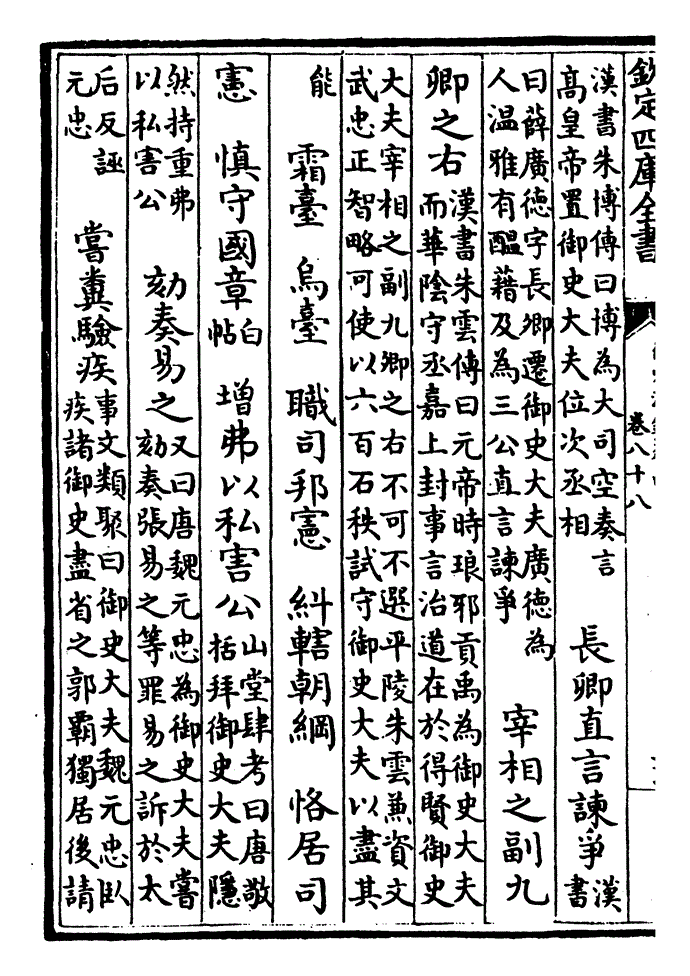 欽定四庫全書
卷八十八
漢書朱博傳曰博為大司空奏言
高皇帝置御史大夫位次丞相
長卿直言諫爭
漢
書
曰薛廣德字長卿遷御史大夫廣德為
人温雅有醖藉及為三公直言諫爭
宰相之副九
卿之右
漢書朱雲傳曰元帝時琅邪貢禹為御史大夫
而華陰守丞嘉上封事言治道在於得賢御史
大夫宰相之副九卿之右不可不選平陵朱雲兼資文
武忠正智略可使以六百石秩試守御史大夫以盡其
能
霜臺 烏臺 職司邦憲 糾轄朝綱 恪居司
憲 慎守國章
白
帖
增弗以私害公
山堂肆考曰唐敬
括拜御史大夫隱
然持重弗
以私害公
劾奏易之
又曰唐魏元忠為御史大夫嘗
劾奏張易之等罪易之訴於太
后反誣
元忠
嘗糞驗疾
事文類聚曰御史大夫魏元忠卧
疾諸御史盡省之郭霸獨居後請